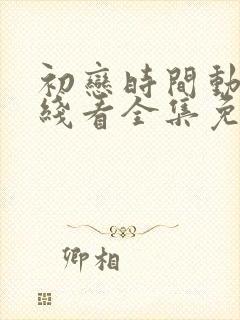 初戀時間動
綫看全集免
卿相